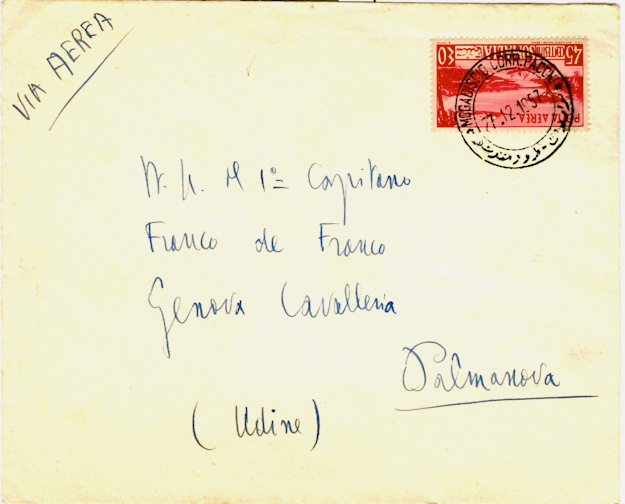 VIA AEREA
45 CENTESIMI 30
POSTA AEREA
MOGADISCIO CORR. PACCHI
27.12.1957
N. H. Il 1º Capitano
Franco de Franco
Genova Cavalleria
Palmanova
(Udine)